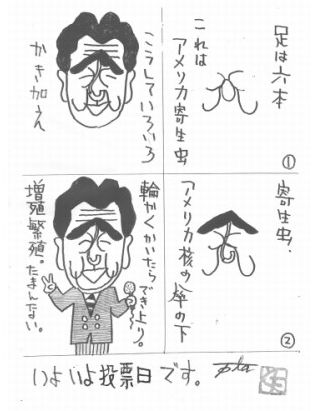 足は六本
これは
アメリカ寄生虫
①
寄生虫、
アメリカ核の傘の下
②
こうしていろいろ
かき加え
輪かくかいたらでき上り。
増殖繁殖。たまんない。
いよいよ投票日です。